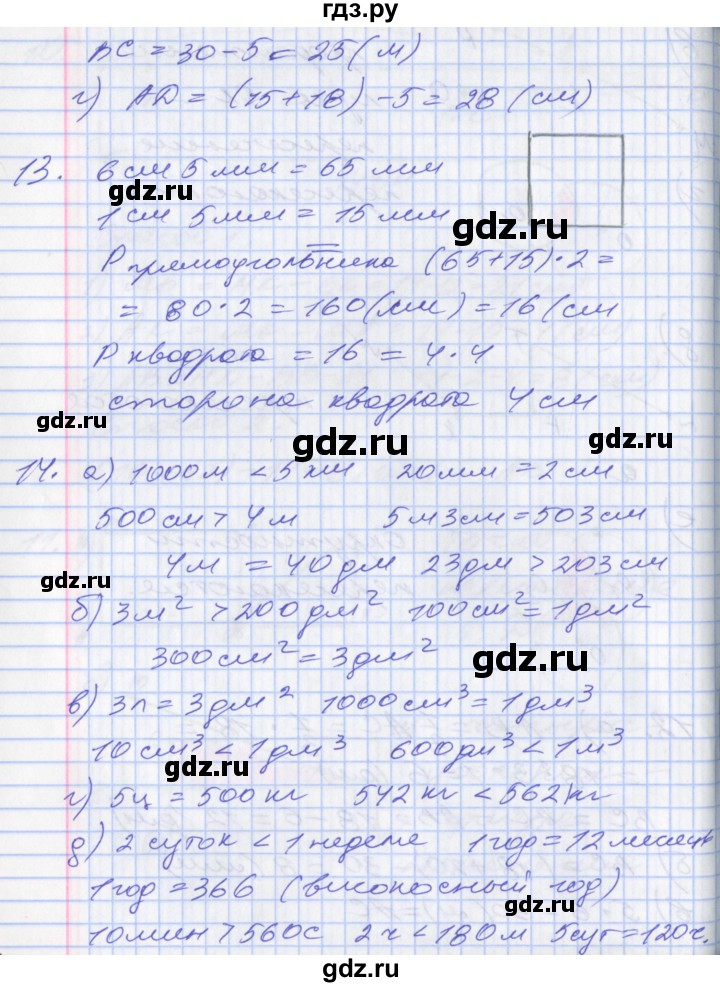 гдз.ру
BC = 30 - 5 = 25 (м)
г) AD = (15 + 18) - 5 = 28 (см)
13. 6 см 5 мм = 65 мм
gdz.ru
gdz.ru
1 см 5 мм = 15 мм
P прямоугольника (65+15)·2 =
= 80·2 = 160 (мм) = 16 (см
P квадрата = 16 = 4·4
сторона квадрата 4 см
gdz.ru
gdz.ru
14. а) 1000 м < 5 км 20 мм = 2 см
500 см > 4 м 5 м 3 см = 503 см
4 м = 40 дм 23 дм > 203 см
б) 3 м² > 200 дм² 100 см² = 1 дм²
300 см² = 3 дм²
gdz.ru
в) 3 л = 3 дм² 1000 см³ = 1 дм³
10 см³ < 1 дм³ 600 дм³ < 1 м³
gdz.ru
г) 5 ц = 500 кг 542 кг < 562 кг
д) 2 суток < 1 неделе 1 год = 12 месяц
1 год = 366 (високосный год)
gdz.ru
10 мин > 560 с 2 ч < 180 м 5 сут = 120 ч.
gdz.ru